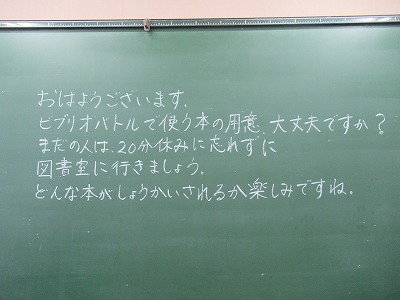 おはようございます、
ビブリオバトルで使う本の用意、大丈夫ですか？
まだの人は、20分休みに忘れずに
図書室に行きましょう。
どんな本がしょうかいされるか楽しみですね。